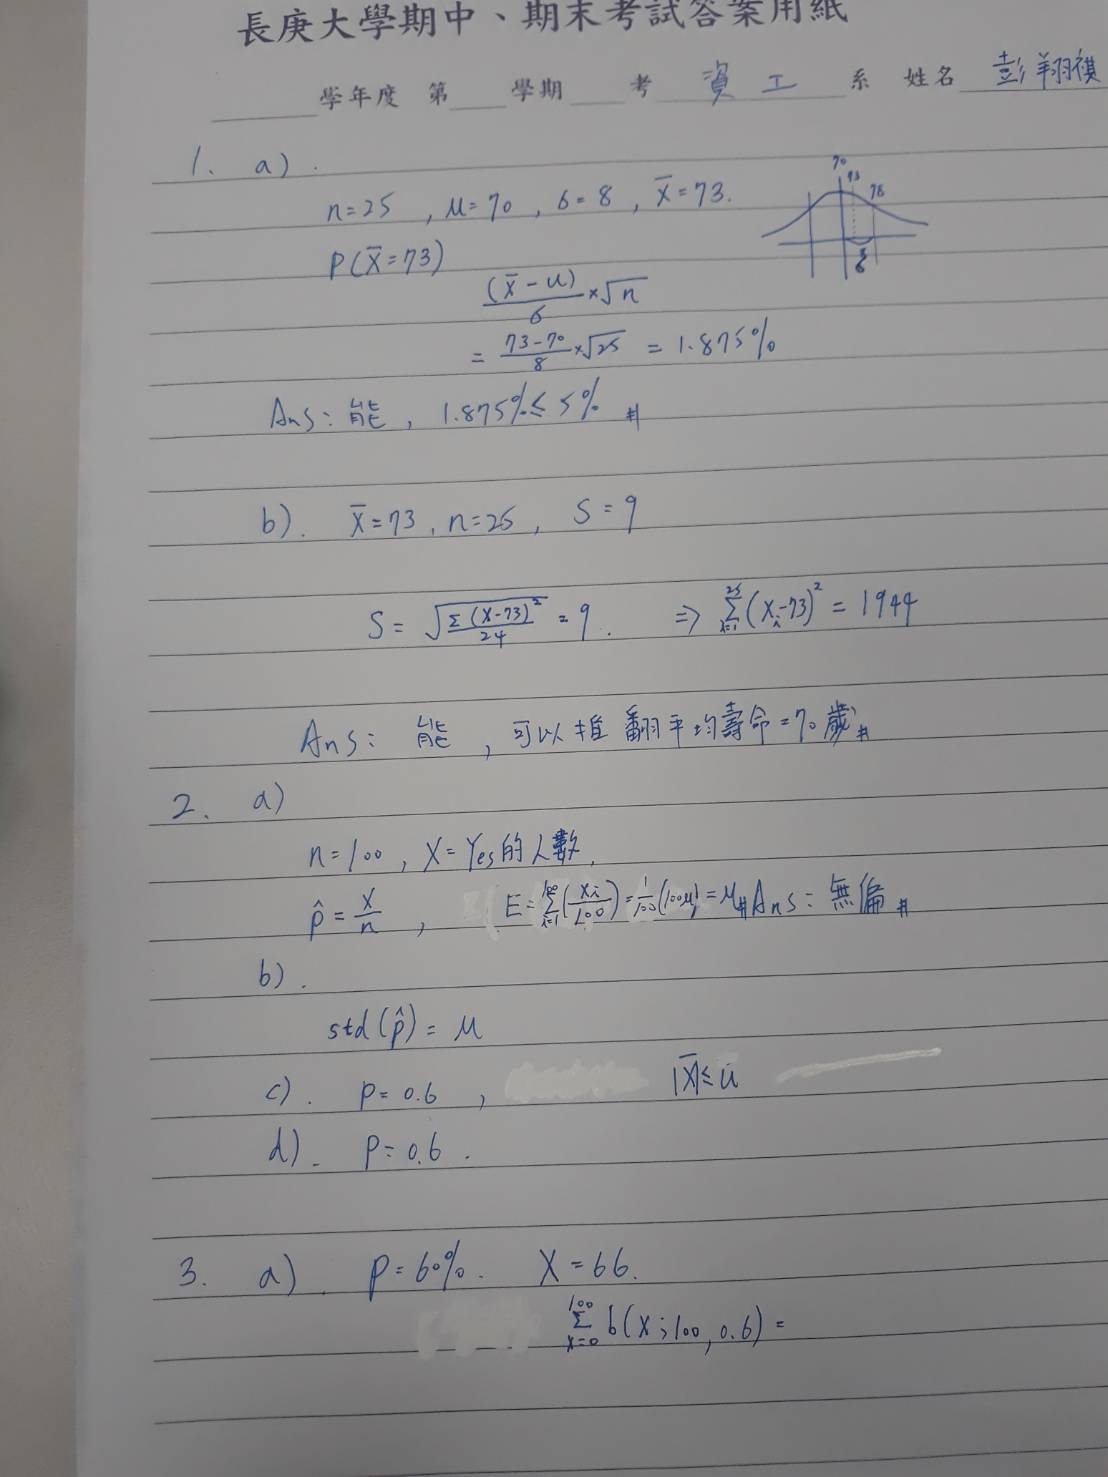 長庚大學期中、期末考試答案用紙
學年度 第 學期 考 資工 系 姓名 彭翔祺
1. a).
n=25 , μ=70 , σ=8 , x̄=73.
70
73
78
8
P(x̄=73)
(x̄-μ)/σ × √n
= 73-70/8 × √25 = 1.875%
Ans: 能 , 1.875% ≤ 5% #
b). x̄=73 , n=25 , S=9
S = √(Σ(x-73)²/24) = 9. ⇒ Σ_{i=1}^{25} (x_i-73)² = 1944
Ans: 能 , 可以推翻平均壽命=70歲 #
2. a)
n=100 , X=Yes的人數 ,
p̂ = X/n , E = Σ_{i=1}^{100} (Xi/100) = 1/100 (100μ) = μ # Ans: 無偏 #
b).
std(p̂) = μ
c). p=0.6 , |x̄| ≤ u
d). p=0.6 .
3. a). p=60%. X=66.
Σ_{x=0}^{100} b(x;100,0.6) =